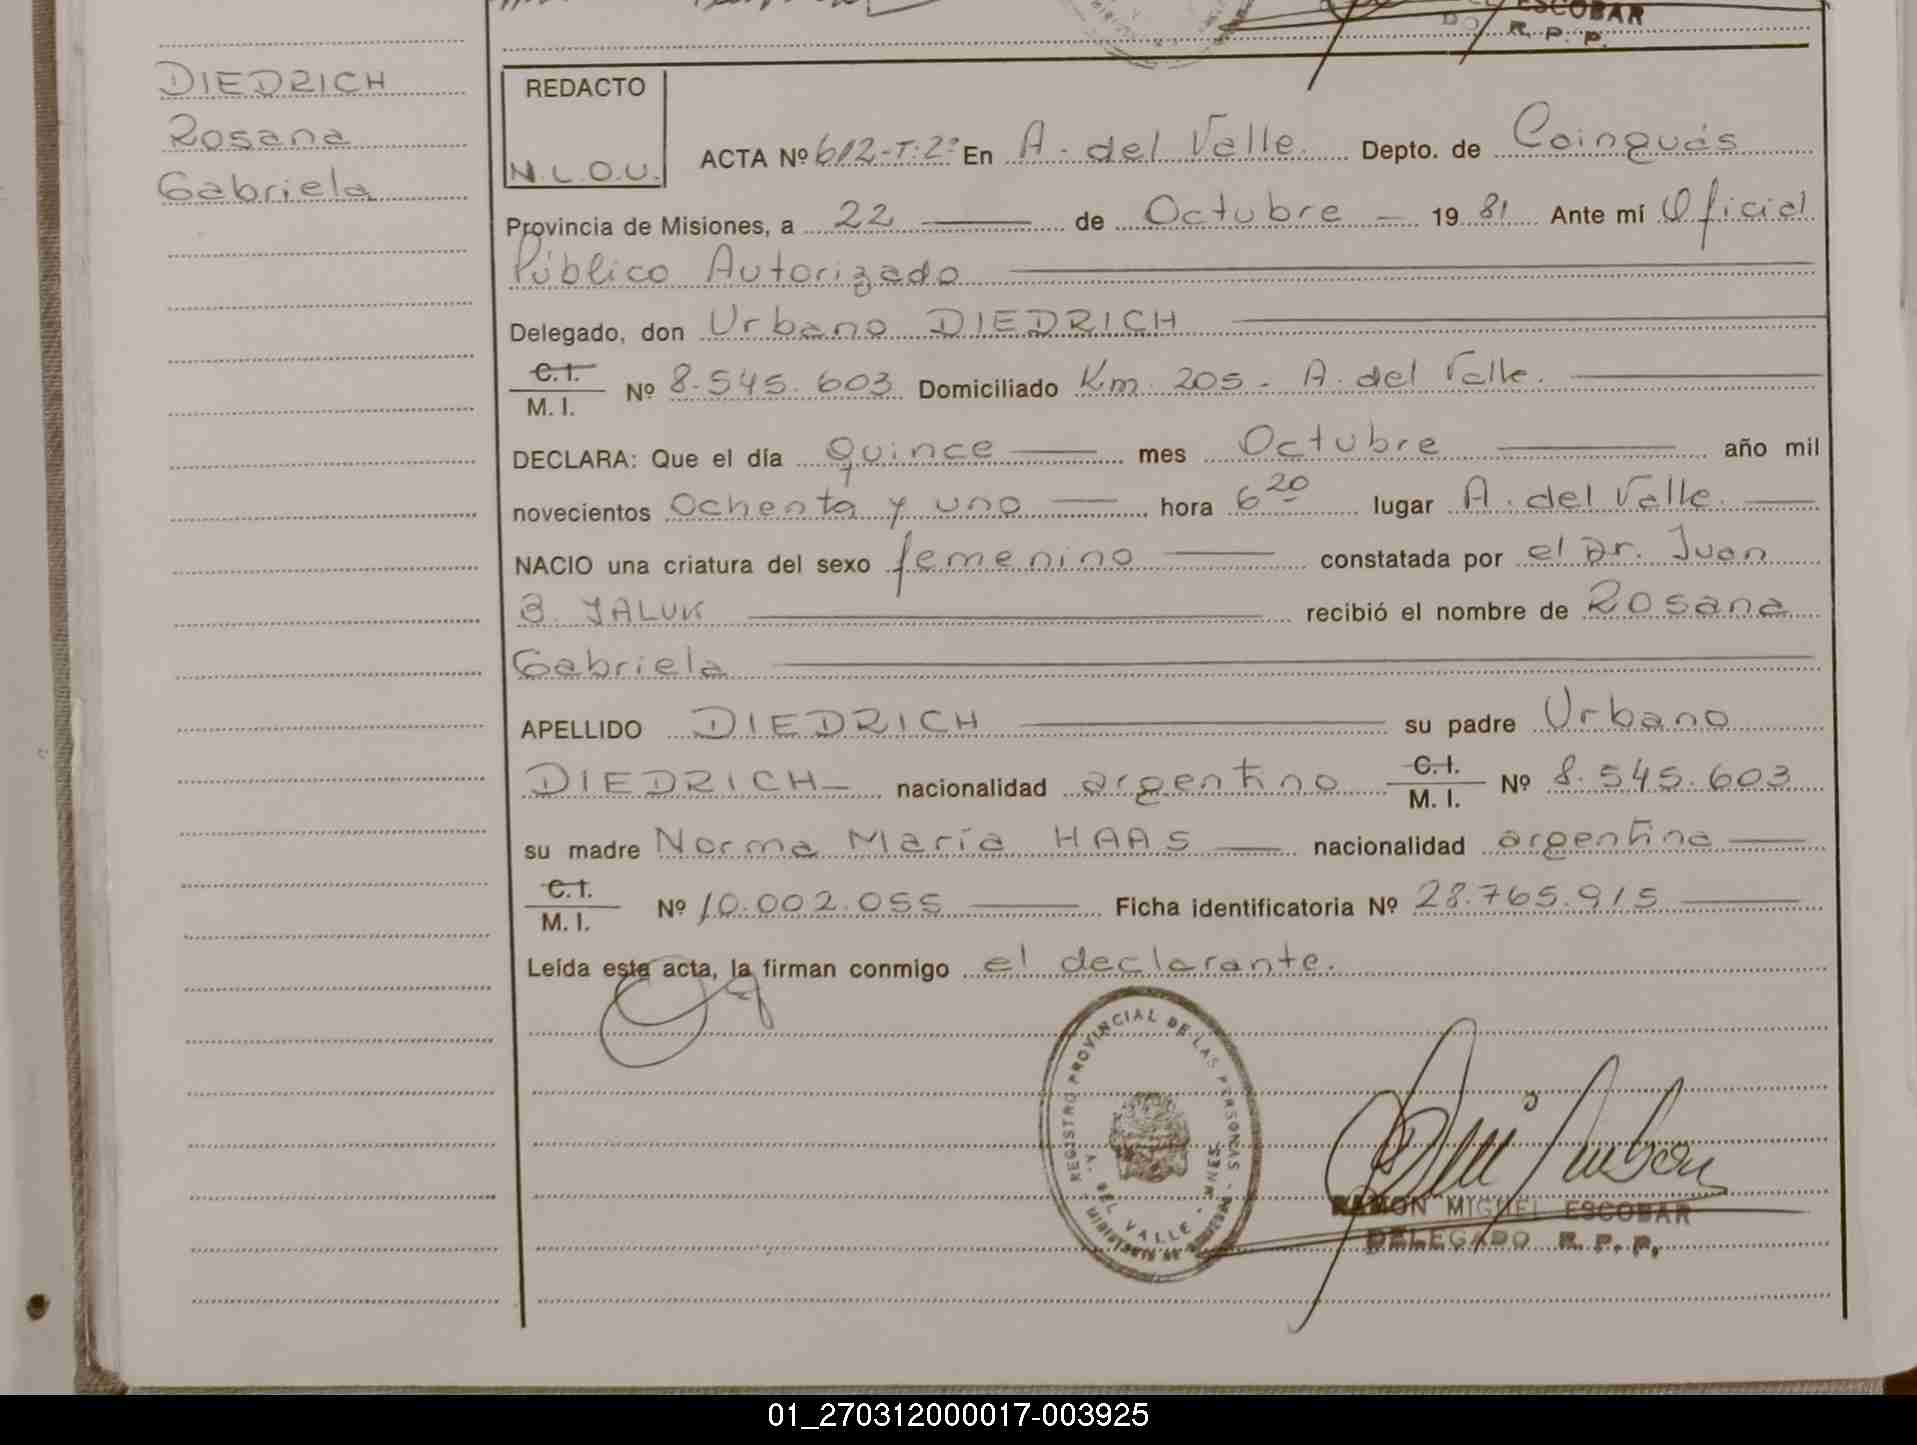 ESCOBAR
R. P. P.
DIEDRICH
Rosana
Gabriela
REDACTO
N.L.O.U.
ACTA Nº 612-T-2º En A. del Valle. Depto. de Cainguás
Provincia de Misiones, a 22 de Octubre 1981 Ante mí Oficial
Público Autorizado
Delegado, don Urbano DIEDRICH
C.I.
M. I. Nº 8.545.603 Domiciliado Km. 205 - A. del Valle.
DECLARA: Que el día quince mes Octubre año mil
novecientos Ochenta y uno hora 6 20 lugar A. del Valle.
NACIO una criatura del sexo femenino constatada por el Dr. Juan
B. JALUK recibió el nombre de Rosana
Gabriela
APELLIDO DIEDRICH su padre Urbano
DIEDRICH nacionalidad argentino C.I. M. I. Nº 8.545.603
su madre Norma María HAAS nacionalidad argentina
C.I.
M. I. Nº 10.002.055 Ficha identificatoria Nº 28.765.915
Leída esta acta, la firman conmigo el declarante.
REGISTRO PROVINCIAL DE LAS PERSONAS
A. DEL VALLE
RAMON MIGUEL ESCOBAR
DELEGADO R. P. P.
01_270312000017-003925